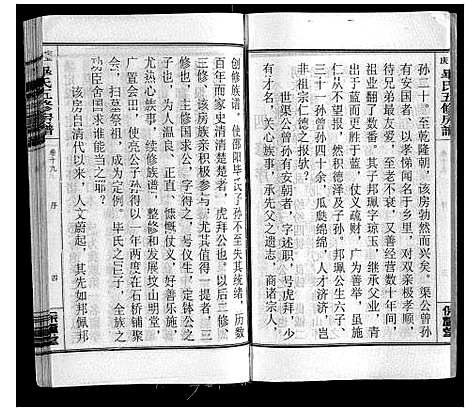 孙二十。至乾隆朝，该房勃然而兴矣。渠公曾孙
有安国者，以孝悌闻名于乡里，对双亲极孝顺，
待兄弟最友爱，至老不衰，又善经营数十年间，
祖业翻了数番。其子邦珮字琼玉，继承父业，青
出于蓝而更胜于蓝，仗义疏财，广为善举，虽施
仁从不望报，然积德泽及子孙。邦珮公生六子、
三十一孙曾孙四十余，瓜瓞绵绵，人才济济，岂
非祖宗仁德之报欤？
世渠公曾孙有安朝者，字述职，号虎拜，少
有才名，关心族事，承先父之遗志，商诸宗人，
创修族谱，使邵阳毕氏子孙不至失其统绪，历数
百年而家史清晰者，虎拜公也，以后二修、
三修，该房族亲积极参与，尤其值得一提者，三
修，主修国求公，字得之，号仪生，定钵公之
子也，为人温良、正直、慷慨仗义，好善乐施，
尤热心族事，续修族谱，整修和发展坟山明堂，
广置会田，与伯公子孙得以一年两度在石桥铺聚
会，扫墓祭祖，成为定例。毕氏之巨子，全族之
功臣舍国求谁能当之耶？
该房自清代以来，人文蔚起，其先如邦佩邦
毕氏五修房谱
卷十九
序
四
毕氏五修房谱